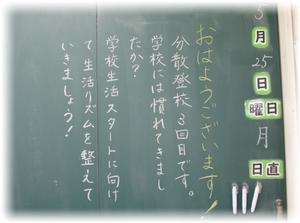 5月25日
曜日 月
日直
おはようございます!
分散登校3回目です。
学校には慣れてきまし
たか?
学校生活スタートに向け
て生活リズムを整えて
いきましょう!